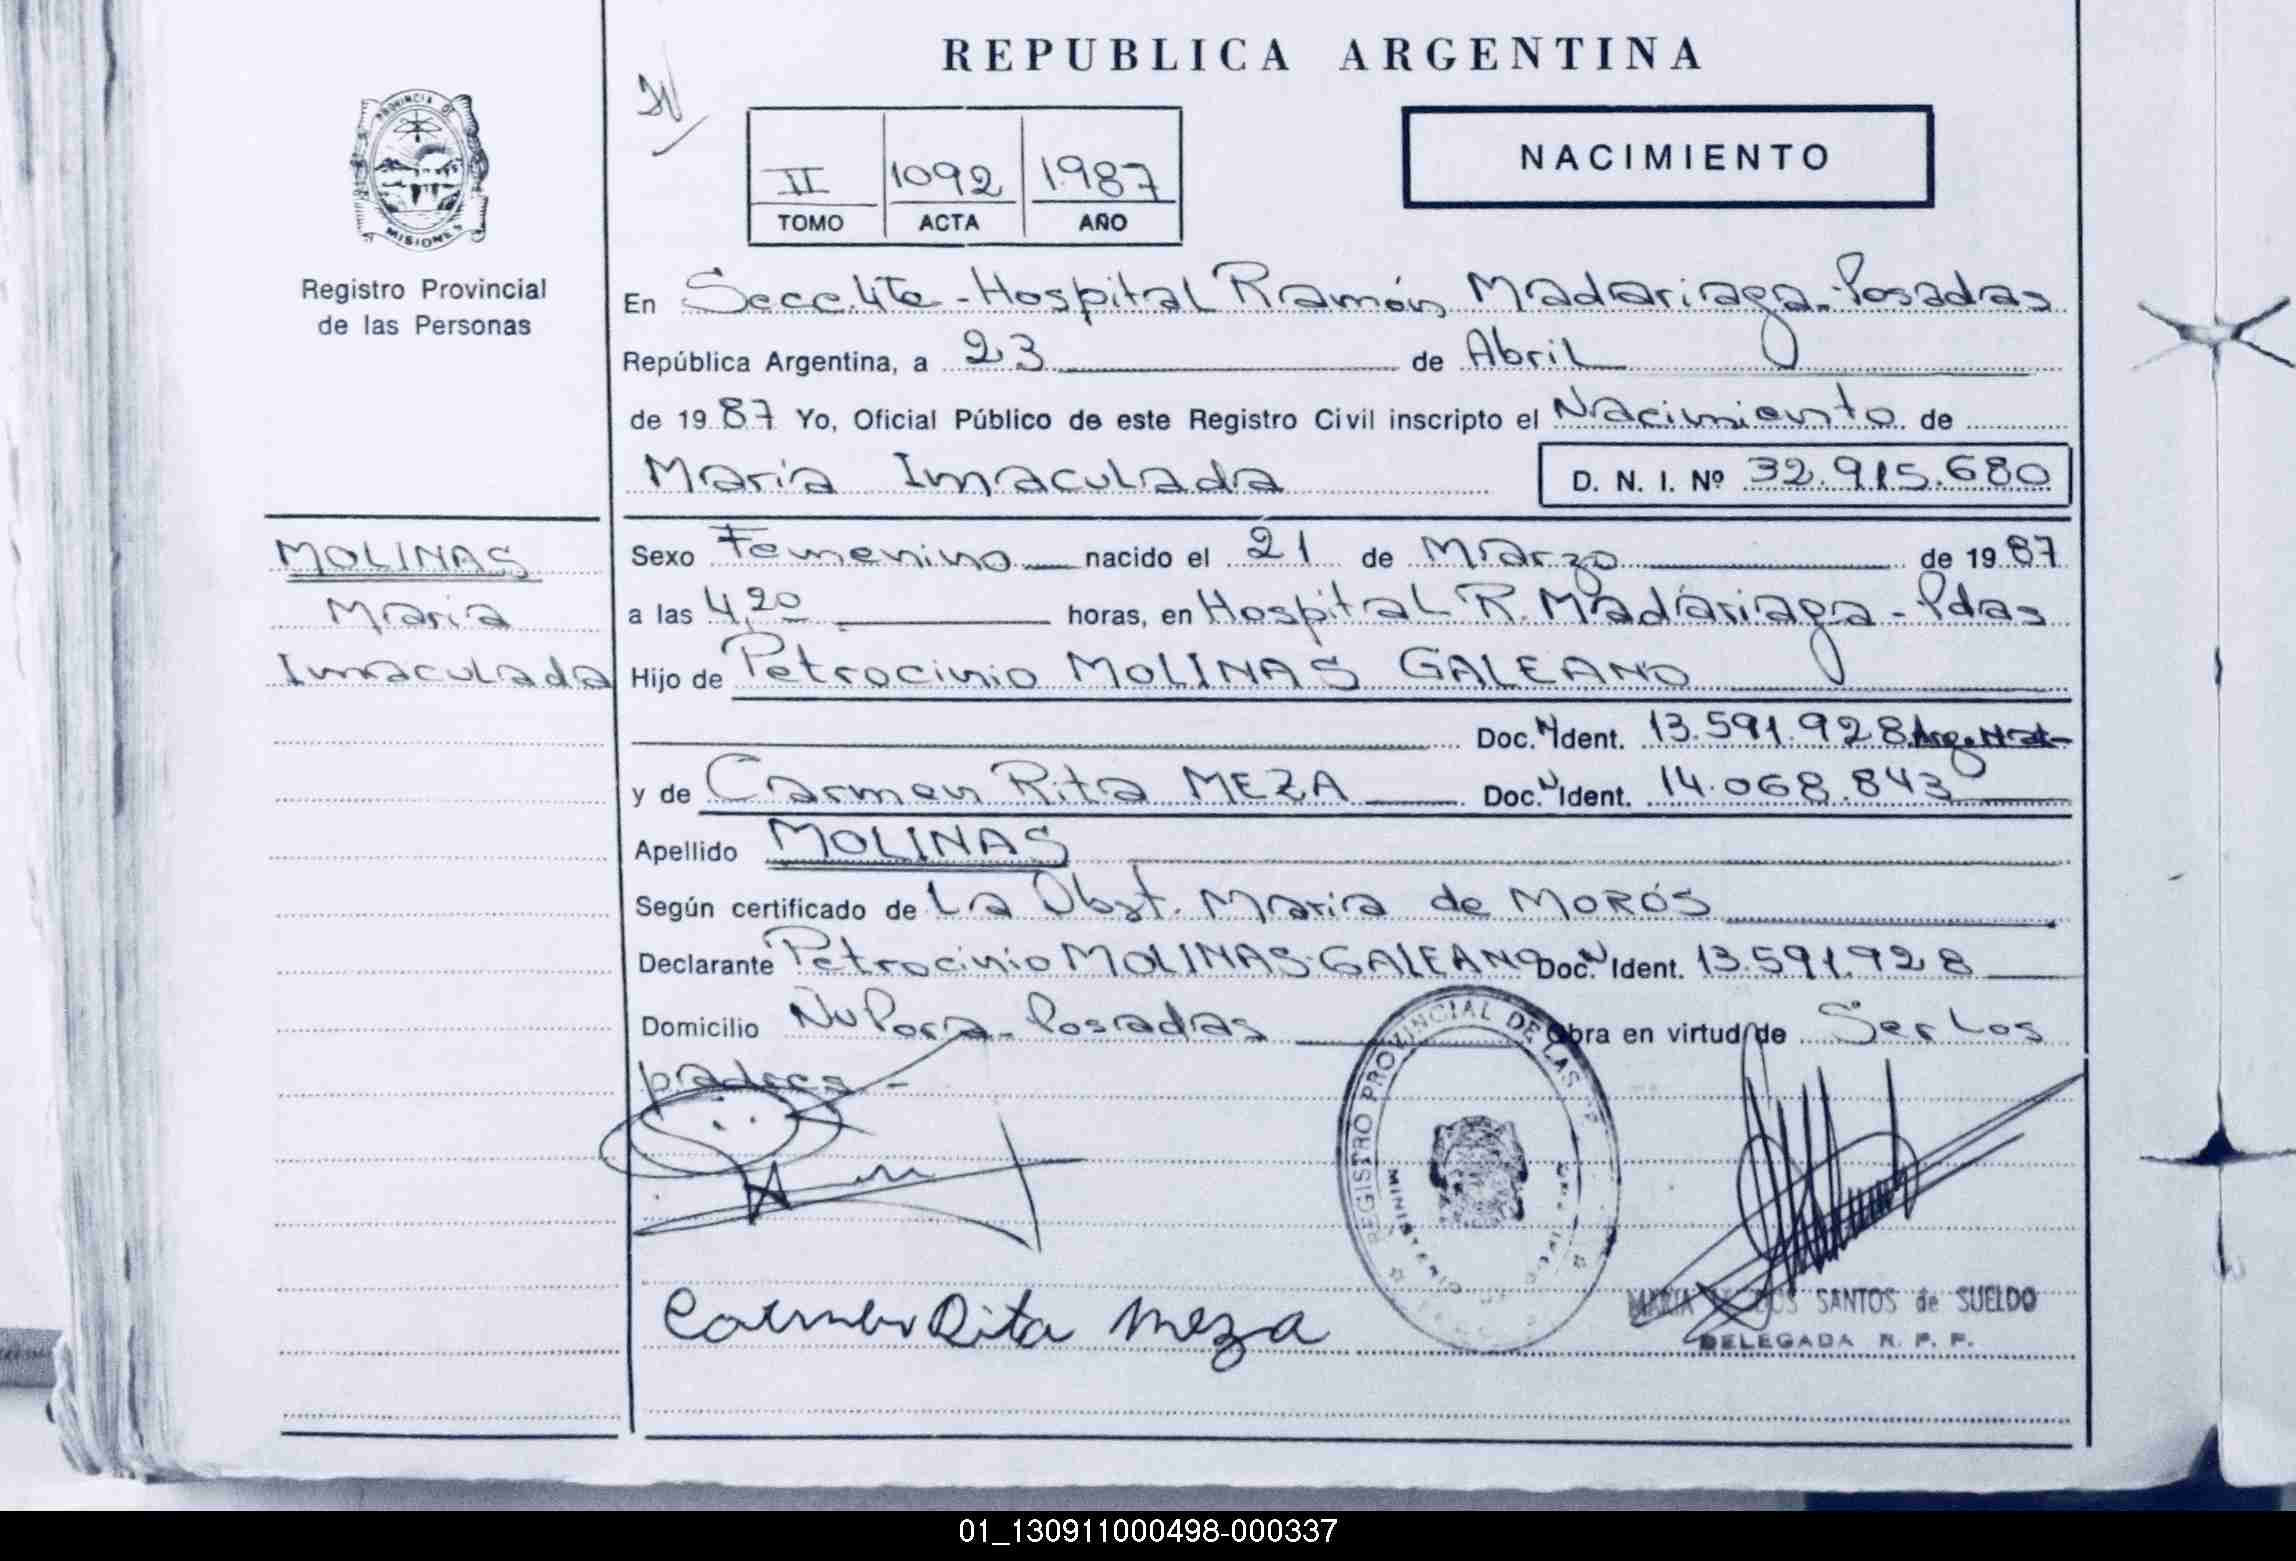 REPUBLICA ARGENTINA
PROVINCIA DE
MISIONES
Registro Provincial
de las Personas
II 1092 1987
TOMO ACTA AÑO
NACIMIENTO
En Secc. 4ta - Hospital Ramón Madariaga - Posadas
República Argentina, a 23 de Abril
de 1987 Yo, Oficial Público de este Registro Civil inscripto el Nacimiento de
Maria Imaculada D. N. I. Nº 32.915.680
MOLINAS
Maria
Imaculada
Sexo Femenino nacido el 21 de Marzo de 1987
a las 4,20 horas, en Hospital R. Madariaga - Pdas
Hijo de Petrocinio MOLINAS GALEANO
Doc. N Ident. 13.591.928 Arg. Nat.
y de Carmen Rita MEZA Doc. N Ident. 14.068.843
Apellido MOLINAS
Según certificado de La Obst. Maria de MORÓS
Declarante Petrocinio MOLINAS GALEANO Doc. N Ident. 13.591.928
Domicilio Ñu Pora - Posadas Obra en virtud de Ser Los
padres -
REGISTRO PROVINCIAL DE LAS
MINISTERIO DE
Carmen Rita Meza
MARIA DOS SANTOS de SUELDO
DELEGADA R. P. P.
01_130911000498-000337